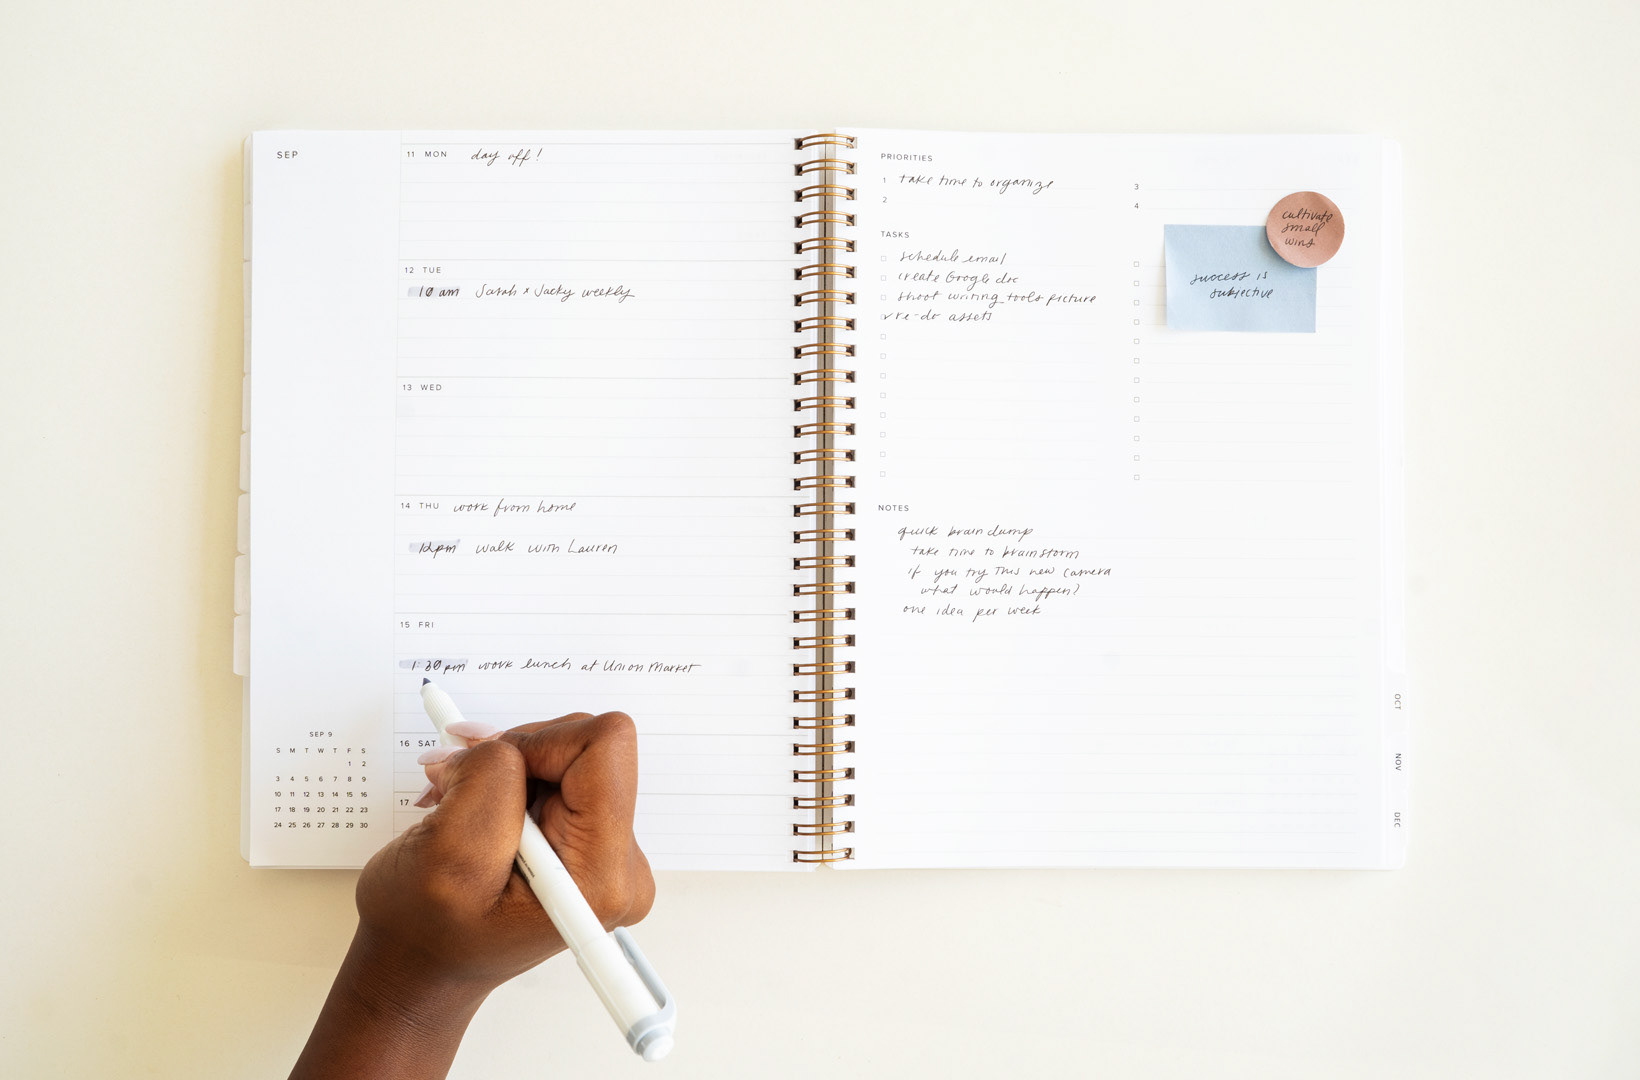 SEP
11 MON day off!
12 TUE
10 am Sarah x Jacky weekly
13 WED
14 THU work from home
12pm walk with Lauren
15 FRI
1:30pm work lunch at Union Market
16 SAT
17
SEP 9
S M T W T F S
1 2
3 4 5 6 7 8 9
10 11 12 13 14 15 16
17 18 19 20 21 22 23
24 25 26 27 28 29 30
PRIORITIES
1 take time to organize
2
3
4
TASKS
schedule email
create Google doc
shoot writing tools picture
re-do assets
cultivate
small
wins
success is
subjective
NOTES
quick brain dump
take time to brainstorm
if you try this new camera
what would happen?
one idea per week
OCT
NOV
DEC